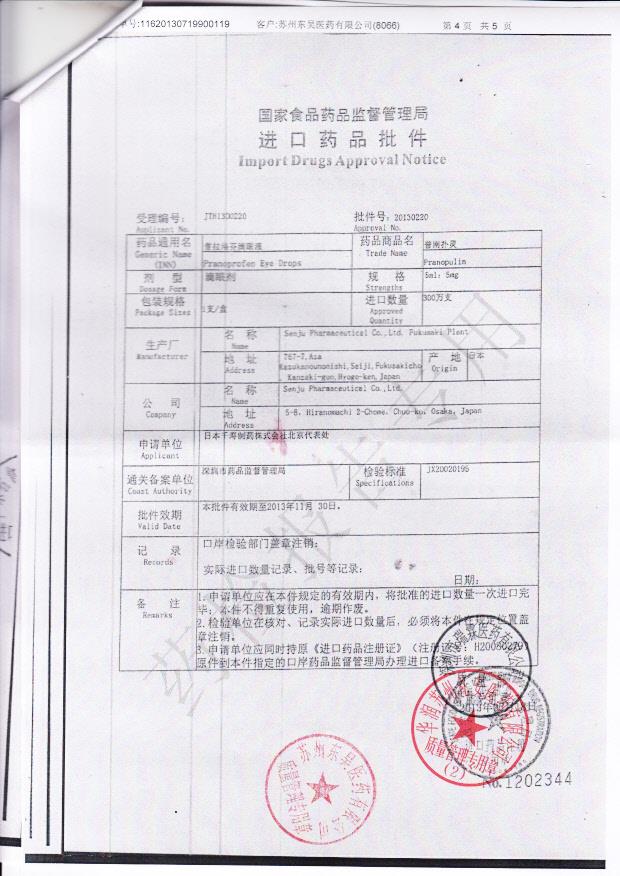 号:11620130719900119 客户:苏州东吴医药有限公司(8066) 第 4 页 共 5 页
国家食品药品监督管理局
进口药品批件
Import Drugs Approval Notice
受理编号: JTH1300220 批件号: 20130220
Applicant No. Approval No.
药品通用名 普拉洛芬滴眼液 药品商品名 普南扑灵
Generic Name Trade Name
(INN) Pranoprofen Eye Drops Pranopulin
剂 型 滴眼剂 规 格 5ml: 5mg
Dosage Form Strengths
包装规格 1支/盒 进口数量 300万支
Package Sizes Approved
Quantity
生产厂 名 称 Senju Pharmaceutical Co.,Ltd. Fukusaki Plant
Manufacturer Name
地 址 767-7,Aza
Address Kazukanounonishi,Seiji,Fukusakicho
Kanzaki-gun,Hyogo-ken,Japan
产 地 日本
Origin
公 司 名 称 Senju Pharmaceutical Co.,Ltd.
Company Name
地 址 5-8, Hiranomachi 2-Chome, Chuo-ku, Osaka, Japan
Address
申请单位 日本千寿制药株式会社北京代表处
Applicant
通关备案单位 深圳市药品监督管理局 检验标准 JX20020195
Coast Authority Specifications
批件效期 本批件有效期至2013年11月 30日。
Valid Date
记 录 口岸检验部门盖章注销:
Records 实际进口数量记录、批号等记录:
日期:
备 注 1.申请单位应在本件规定的有效期内，将批准的进口数量一次进口完
Remarks 毕；本件不得重复使用，逾期作废。
2.检验单位在核对、记录实际进口数量后，必须将本件在规定位置盖
章注销。
3.申请单位应同时持原《进口药品注册证》（注册证号:
原件到本件指定的口岸药品监督管理局办理进口备案手续。
药检报告专用
质量管理专用章
(2)
苏州东吴医药有限公司
质量管理专用章
No.1202344